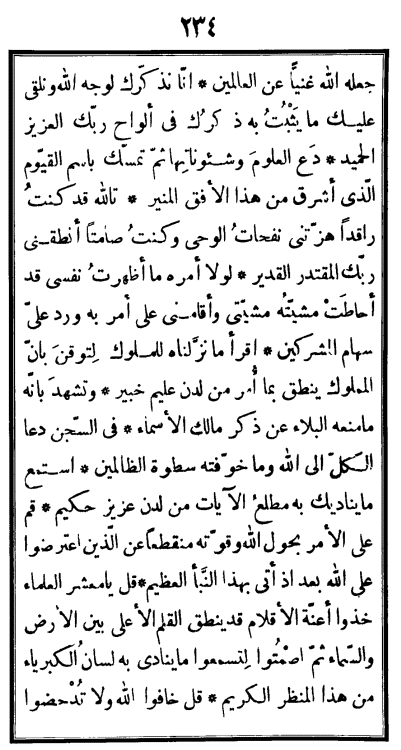 ٢٣٤
جعله الله غنيًّا عن العالمين * انّا نذكّرك لوجه الله ونلقى
عليك ما يَثْبُتُ به ذكرك فى ألواح ربّك العزيز
الحميد * دَع العلومَ وشئوناتِها ثمّ تمسّك باسم القيّوم
الّذى أشرق من هذا الأفق المنير * تالله قد كنتُ
راقداً هزّتنى نفحاتُ الوحى وكنتُ صامتاً أنطقنى
ربّك المقتدر القدير * لولا أمره ما أظهرتُ نفسى قد
أحاطَتْ مشيّتُه مشيّتى وأقامنى على أمر به ورد علىّ
سهام المشركين * اقرأ ما نزّلناه للملوك لِتوقنَ بانّ
المملوك ينطق بما أُمر من لدن عليم خبير * وتشهدَ بانّه
مامنعه البلاء عن ذكر مالك الأسماء * فى السّجن دعا
الكلّ الى الله وما خوّفته سطوة الظالمين * استمع
ما يناديك به مطلعُ الآيات من لدن عزيز حكيم * قم
على الأمر بحول الله وقوّته منقطعًا عن الّذين اعترضوا
على الله بعد اذ أتى بهذا النَّبأ العظيم * قل يامعشر العلماء
خذوا أعنّة الأقلام قد ينطق القلم الأعلى بين الأرض
والسّماء ثمّ اصْمُتُوا لِتسمعوا ما ينادى به لسان الكبرياء
من هذا المنظر الكريم * قل خافوا الله ولا تُدْحضوا